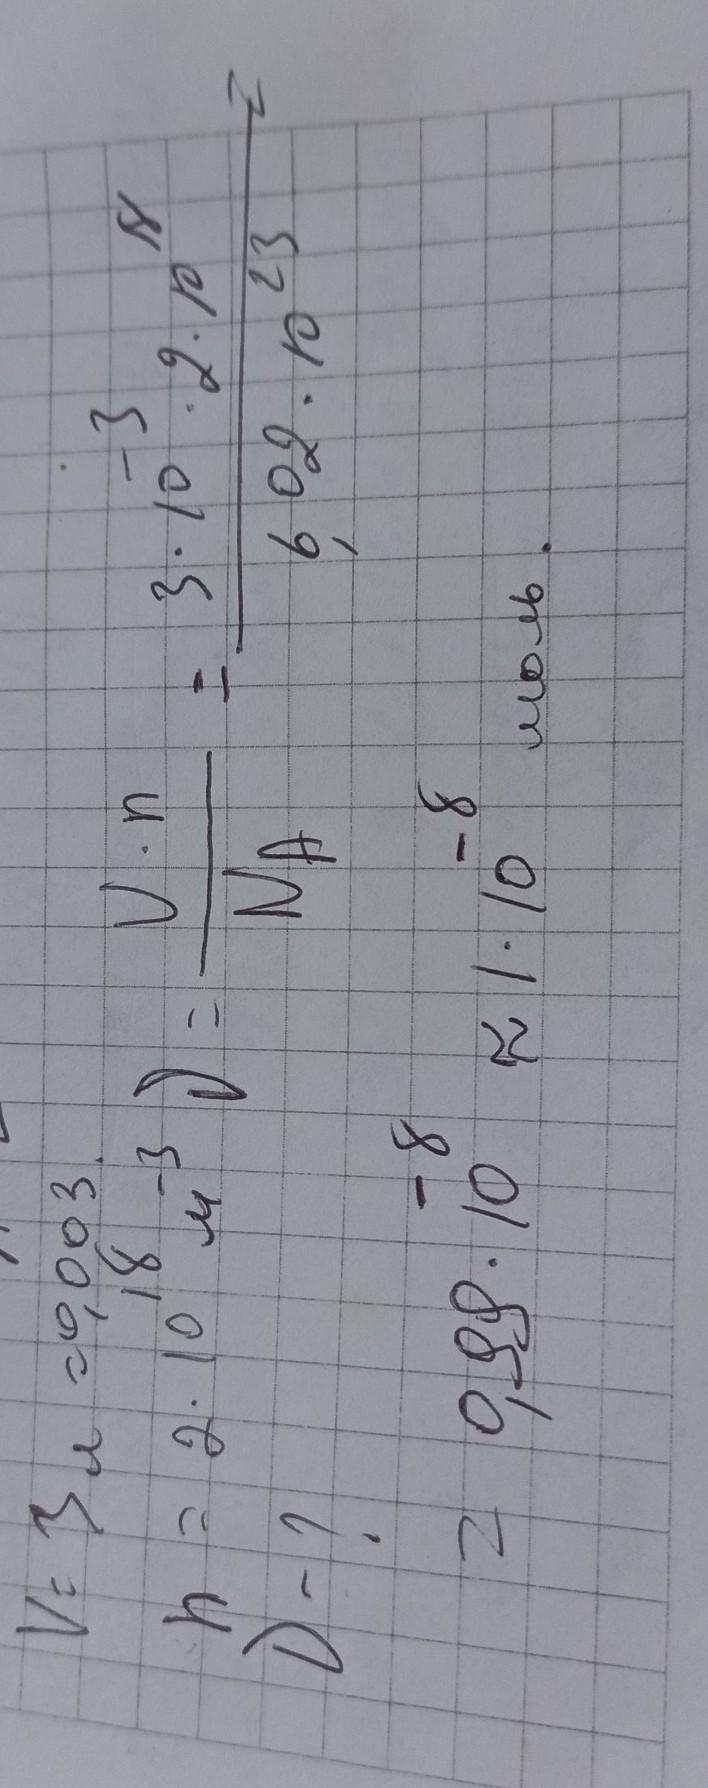 V = 3 л = 0,003
n = 2 · 10¹⁸ м⁻³
ν - ?
ν = V · n / N_A = 3 · 10⁻³ · 2 · 10¹⁸ / 6,02 · 10²³ =
= 0,99 · 10⁻⁸ ≈ 1 · 10⁻⁸ моль.